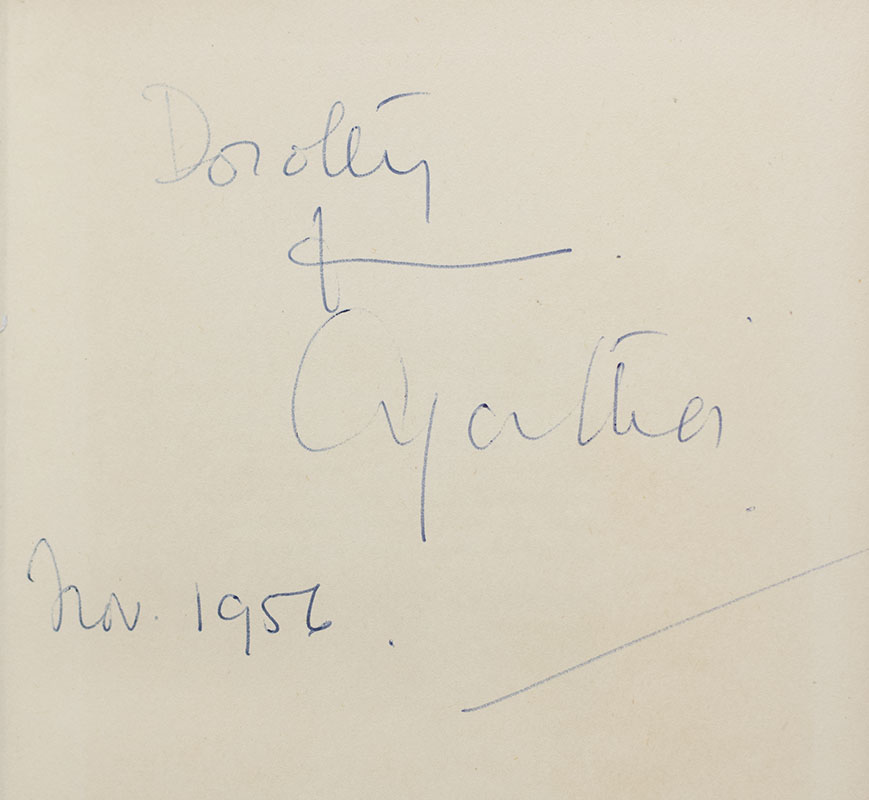 Dorothy
from
Agatha
Nov. 1956.